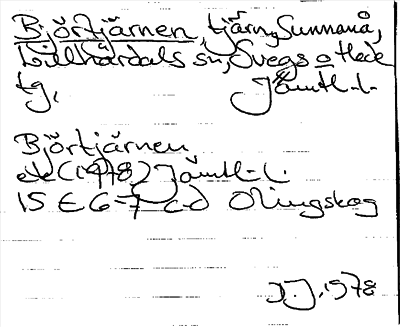 Björtjärnen, tjärn, Sunnanå,
Lillhärdals sn, Svegs o Hede
tg, Jämtl.l.
Björtjärnen
ek (1978) Jämtl-l.
15 E 6-7 c-d Olingskog
J.J. 1978